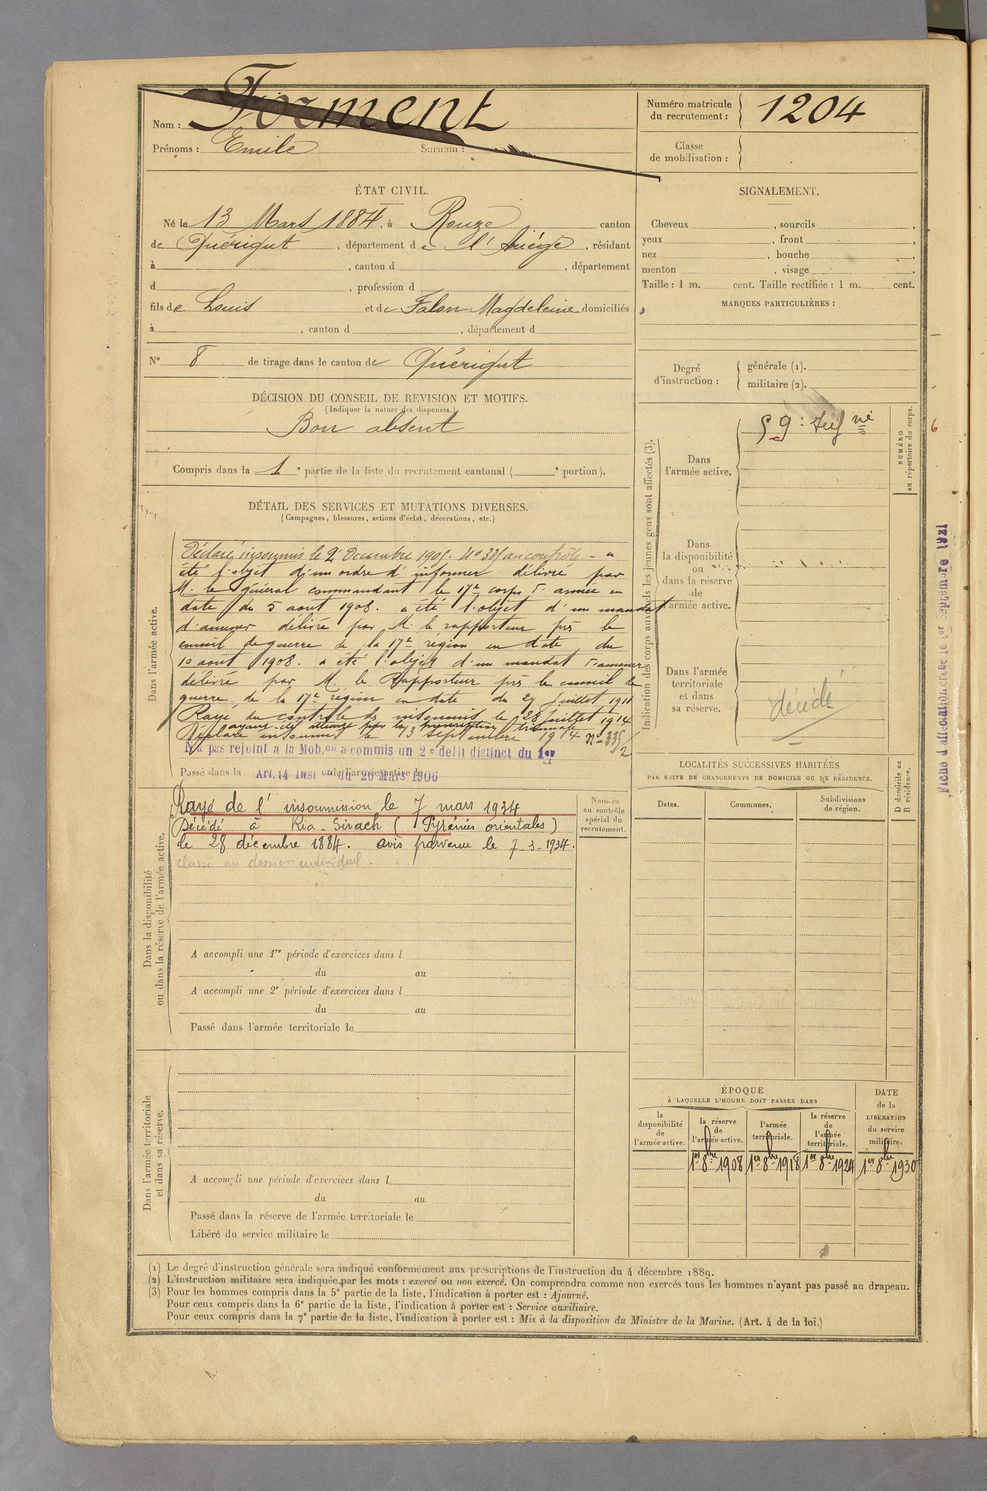 Nom : Forment
Prénoms : Emile Surnom :
Numéro matricule du recrutement : 1204
Classe de mobilisation :
ÉTAT CIVIL.
Né le 13 Mars 1884. à Rouze canton
de Quérigut, département de l'Ariège, résidant
à , canton d , département
d , profession d
fils de Louis et de Falon Magdeleine, domiciliés
à , canton d , département d
N° 8 de tirage dans le canton de Quérigut
DÉCISION DU CONSEIL DE REVISION ET MOTIFS.
(Indiquer la nature des dispenses.)
Bon absent
Compris dans la 1 e partie de la liste du recrutement cantonal ( e portion).
SIGNALEMENT.
Cheveux , sourcils ,
yeux , front ,
nez , bouche ,
menton , visage
Taille : 1 m. cent. Taille rectifiée : 1 m. cent.
MARQUES PARTICULIÈRES :
Degré d'instruction : générale (1).
militaire (2).
Indication des corps auxquels les jeunes gens sont affectés (3).
Dans l'armée active. 59e Inf rie
NUMÉRO au répertoire du corps.
6
Dans la disponibilité ou dans la réserve de l'armée active.
Dans l'armée territoriale et dans sa réserve.
décédé
DÉTAIL DES SERVICES ET MUTATIONS DIVERSES.
(Campagnes, blessures, actions d'éclat, décorations, etc.)
Dans l'armée active.
Déclaré insoumis le 2 Décembre 1905. N° 335 au contrôle - a
été l'objet d'un ordre d'informer délivré par
M. le général commandant le 17e corps d'armée en
date du 5 aout 1908. a été l'objet d'un mandat
d'amener délivré par M. le rapporteur près le
conseil de guerre de la 17e région en date du
10 aout 1908. a été l'objet d'un mandat d'amener
délivré par M. le Rapporteur près le conseil de
guerre de la 17e région en date du 29 juillet 1911
Rayé du contrôle des insoumis le 28 juillet 1914
Déclaré insoumis le 3 septembre 1914 N° 335/2
N'a pas rejoint à la Mob.on a commis un 2e délit distinct du 1er
Passé dans la de l'armée active le
Art. 14 Inst on du 20 Mars 1906
Dans la disponibilité ou dans la réserve de l'armée active.
Rayé de l'insoumission le 7 mars 1934
Décédé à Ria-Sirach (Pyrénées orientales)
le 28 décembre 1884. avis parvenu le 7-3-1934.
classé au dossier individuel.
Numéro au contrôle spécial du recrutement.
A accompli une 1re période d'exercices dans l
du au
A accompli une 2e période d'exercices dans l
du au
Passé dans l'armée territoriale le
LOCALITÉS SUCCESSIVES HABITÉES
PAR SUITE DE CHANGEMENTS DE DOMICILE OU DE RÉSIDENCE.
Dates. Communes. Subdivisions de région.
D domicile ou R résidence.
Dans l'armée territoriale et dans sa réserve.
A accompli une période d'exercices dans l
du au
Passé dans la réserve de l'armée territoriale le
Libéré du service militaire le
ÉPOQUE
À LAQUELLE L'HOMME DOIT PASSER DANS
la disponibilité de l'armée active.
la réserve de l'armée active.
l'armée territoriale.
la réserve de l'armée territoriale.
DATE de la LIBÉRATION du service militaire.
1er 8bre 1908 1er 8bre 1918 1er 8bre 1924 1er 8bre 1930
(1) Le degré d'instruction générale sera indiqué conformément aux prescriptions de l'instruction du 4 décembre 1889.
(2) L'instruction militaire sera indiquée par les mots : exercé ou non exercé. On comprendra comme non exercés tous les hommes n'ayant pas passé au drapeau.
(3) Pour les hommes compris dans la 5e partie de la liste, l'indication à porter est : Ajourné.
Pour ceux compris dans la 6e partie de la liste, l'indication à porter est : Service auxiliaire.
Pour ceux compris dans la 7e partie de la liste, l'indication à porter est : Mis à la disposition du Ministre de la Marine. (Art. 4 de la loi.)